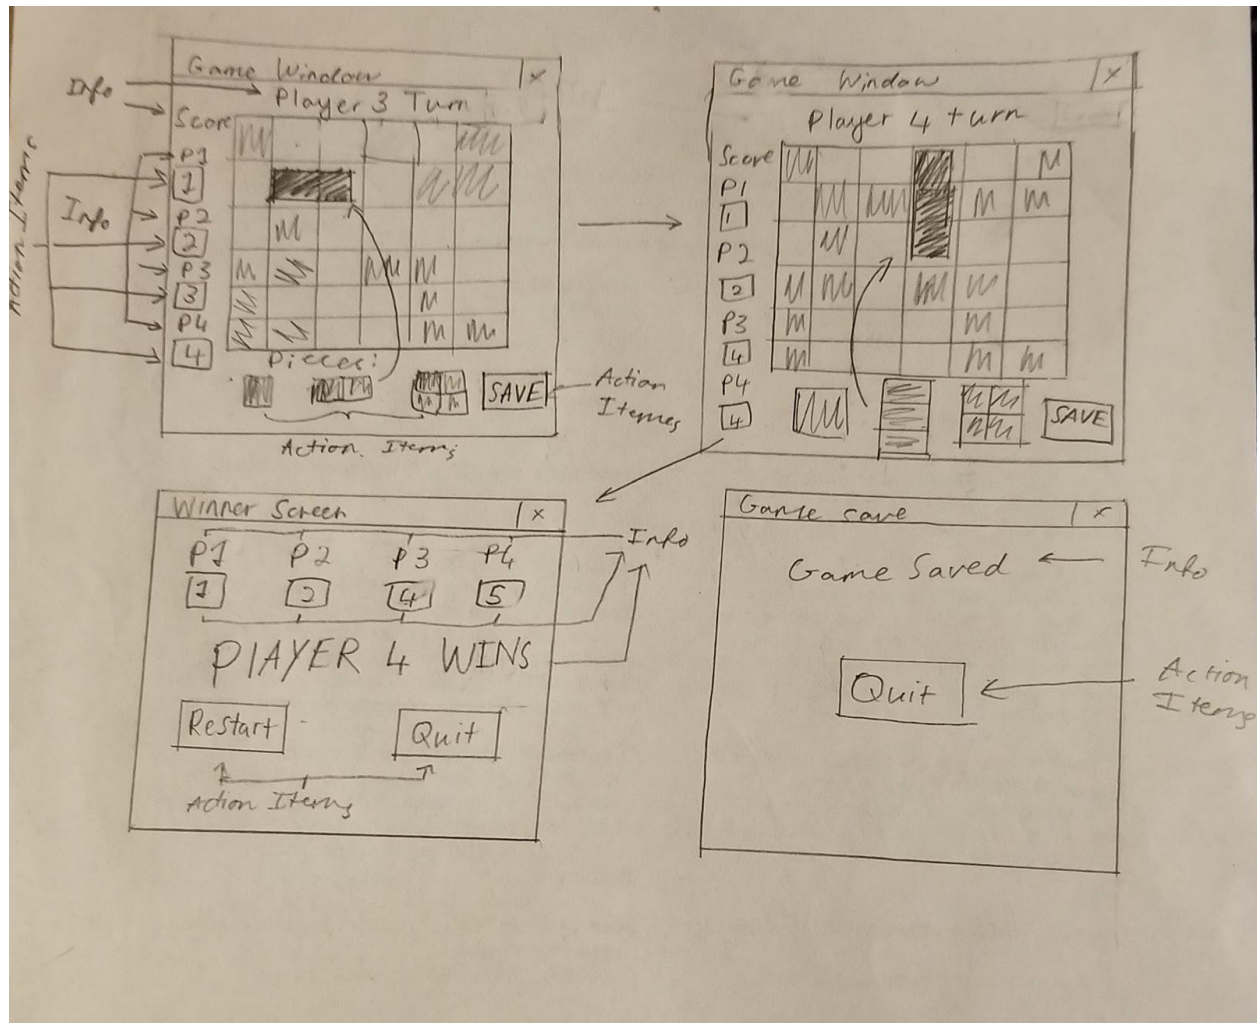 Game Window x
Info
Player 3 Turn
Score
P1
1
Info
P2
2
P3
3
P4
4
Action Items
Pieces:
SAVE
Action Items
Action Itemes
Game Window x
Player 4 turn
Score
P1
1
P2
2
P3
4
P4
4
SAVE
Winner Screen x
P1 P2 P3 P4
1 2 4 5
Info
PlAYER 4 WINS
Restart Quit
Action Items
Game save x
Game Saved
Info
Quit
Action
Items